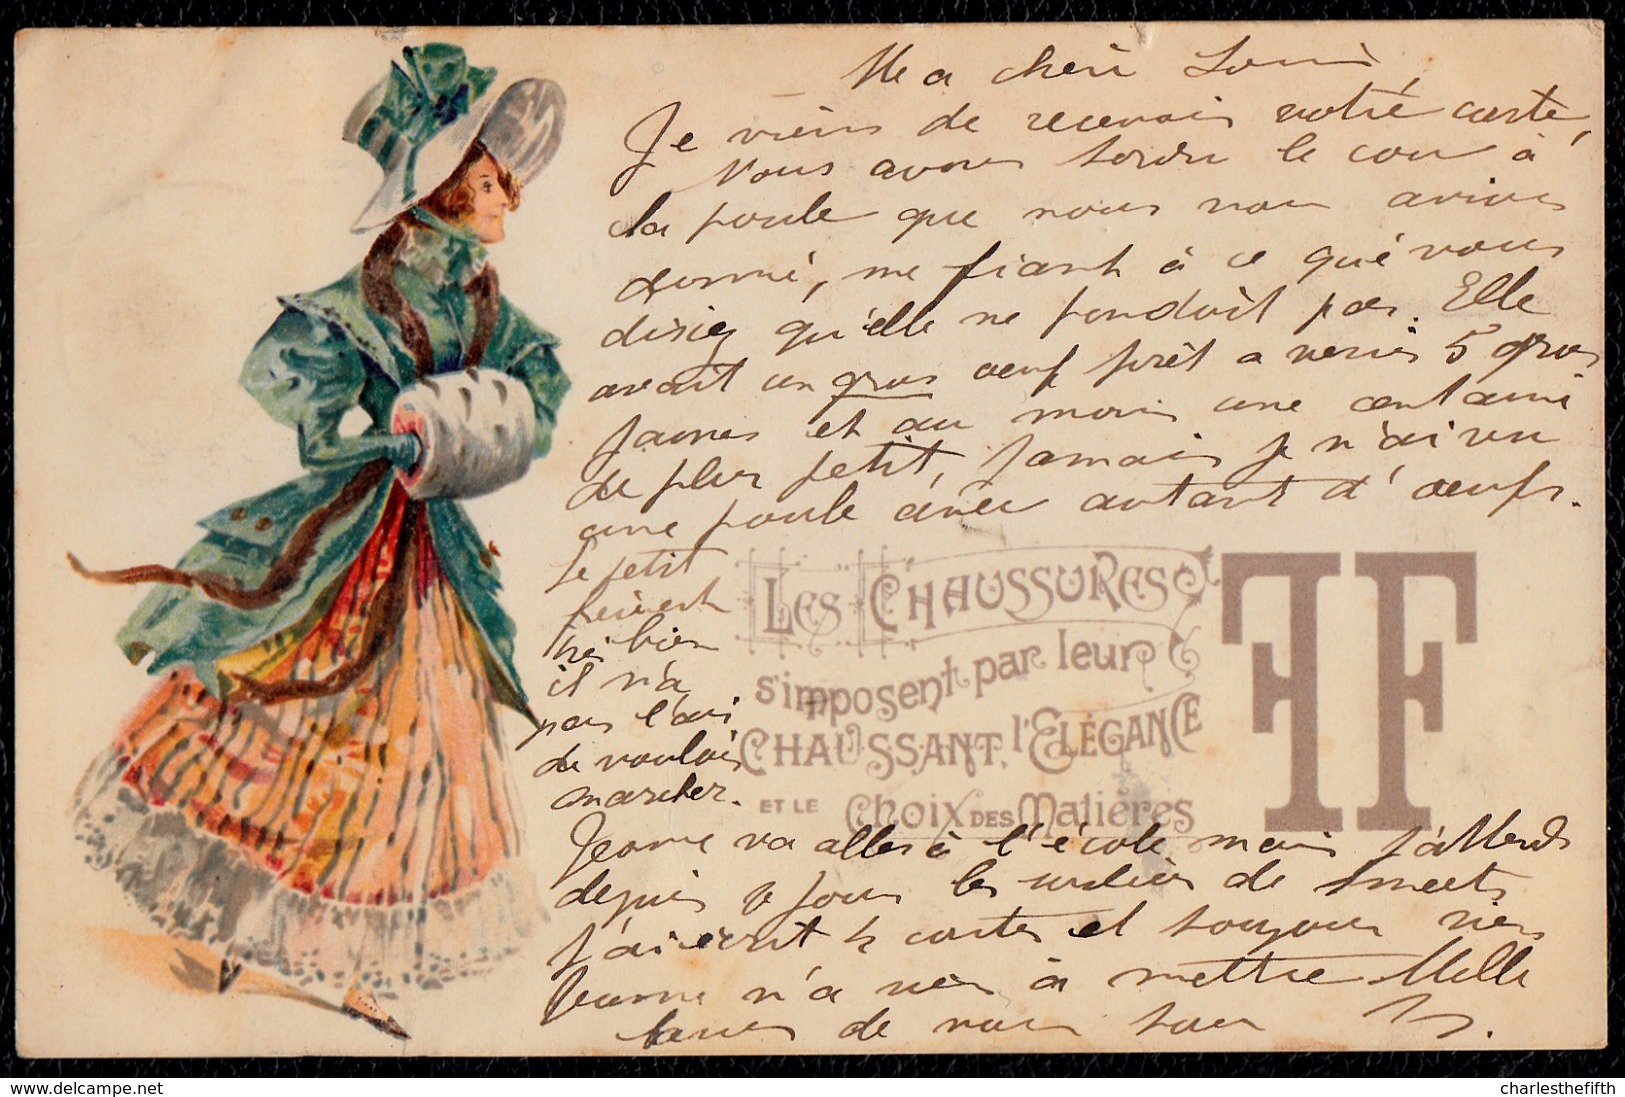 Ma chèri
Je viens de recevoir votre carte,
Nous avons tordu le cou à
la poule que vous nous aviez
donné, me fiant à ce que vous
disiez qu'elle ne pondait pas. Elle
avait un gros oeuf prêt a venir 5 gros
jaunes et au moins une centaine
de plus petit, Jamais je n'ai vu
une poule avec autant d'oeufs.
Le petit
très bien
il n'a
pas l'air
de vouloir
marcher.
LES CHAUSSURES
s'imposent par leur
CHAUSSANT, l'ELÉGANCE
ET LE Choix DES Matières
FF
Jeanne va aller à l'école mais j'attends
depuis jours les de
J'ai écrit cartes et toujours rien
Jeanne n'a rien à mettre Mille
de nous tous
delcampe.net
charlesthefifth